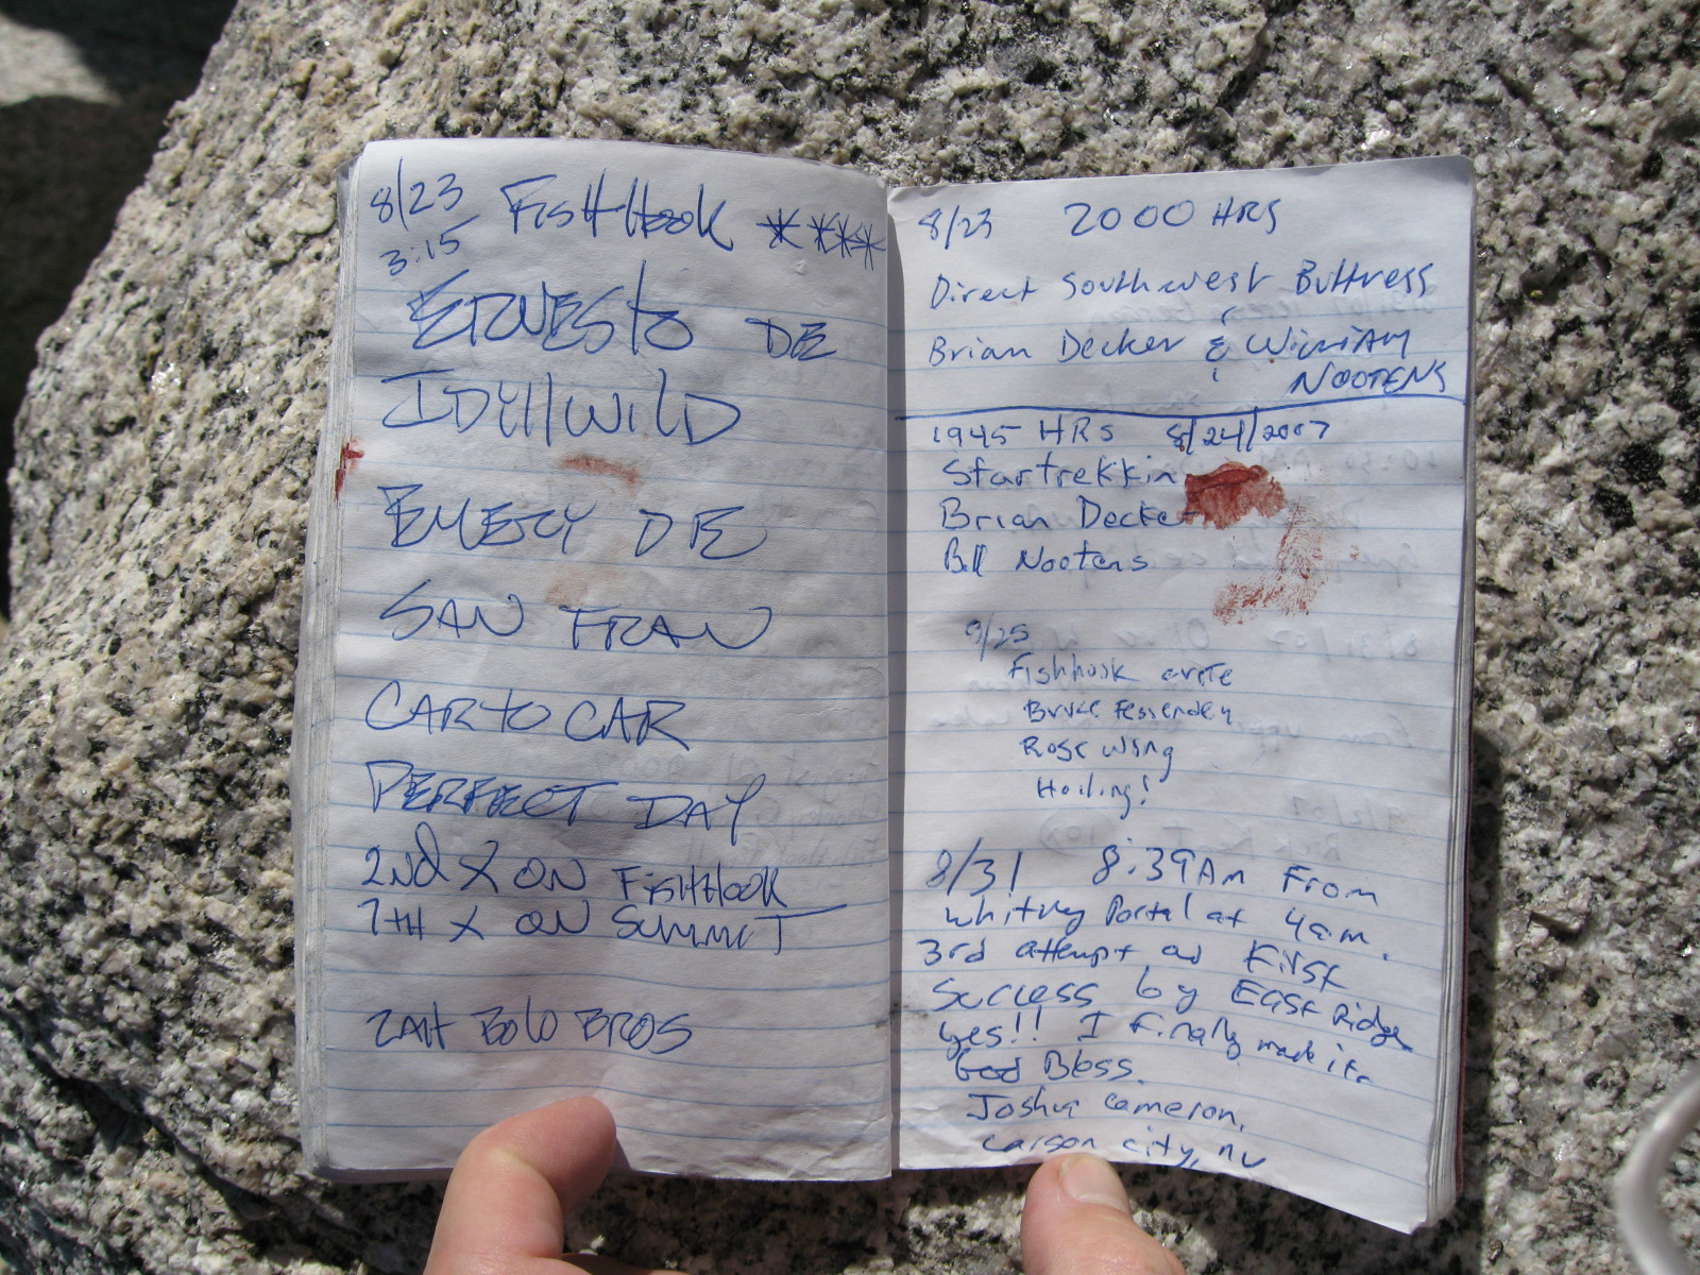 8/23 FISHHOOK ****
3:15
ERNESTO DE
IDYllWilD
EMERY DE
SAN FRAN
CAR to CAR
PERFECT DAY
2Nd X ON FISHHOOK
7TH X ON SUMMIT
BROS
8/23 2000 HRS
Direct Southwest Buttress
Brian Decker & William
NOOTENS
1945 HRS 8/24/2007
Startrekkin
Brian Decker
Bill Nootens
8/25
Fishhook arete
Bruce Fessenden
Rose Wang
Hailing!
8/31 8:39AM From
Whitney Portal at 4am.
3rd attempt and First
Success by East Ridge
yes!! I finally made it.
God Bless.
Joshua Cameron,
Carson city, nv